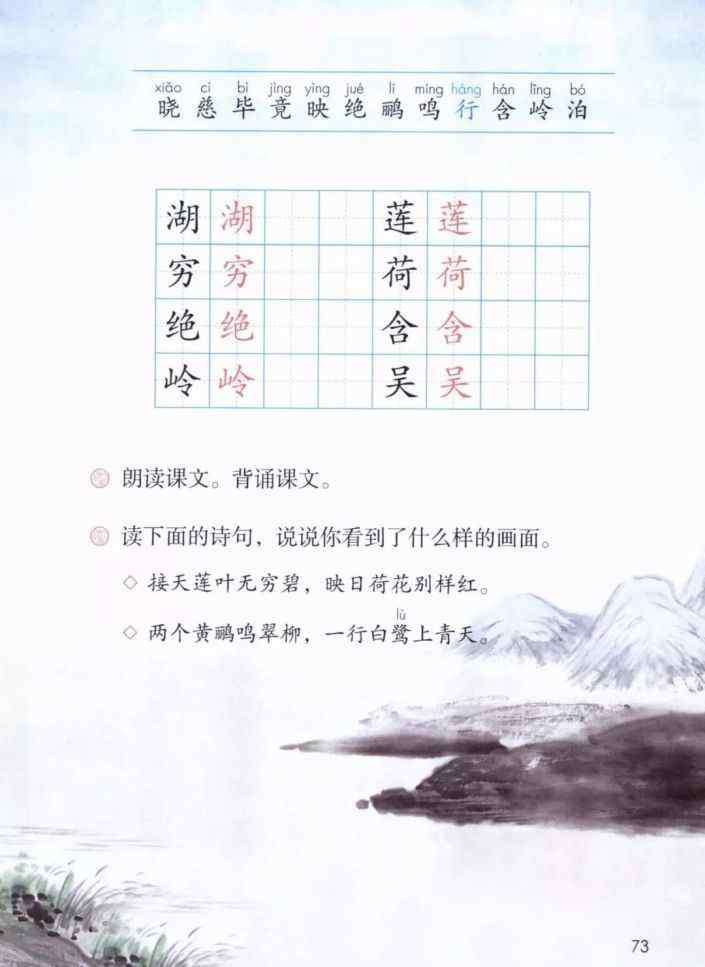 xiǎo cí bì jìng yìng jué lí míng háng hán lǐng bó
晓 慈 毕 竟 映 绝 鹂 鸣 行 含 岭 泊
湖 湖 莲 莲
穷 穷 荷 荷
绝 绝 含 含
岭 岭 吴 吴
朗读课文。背诵课文。
读下面的诗句，说说你看到了什么样的画面。
◇ 接天莲叶无穷碧，映日荷花别样红。
lù
◇ 两个黄鹂鸣翠柳，一行白鹭上青天。
73